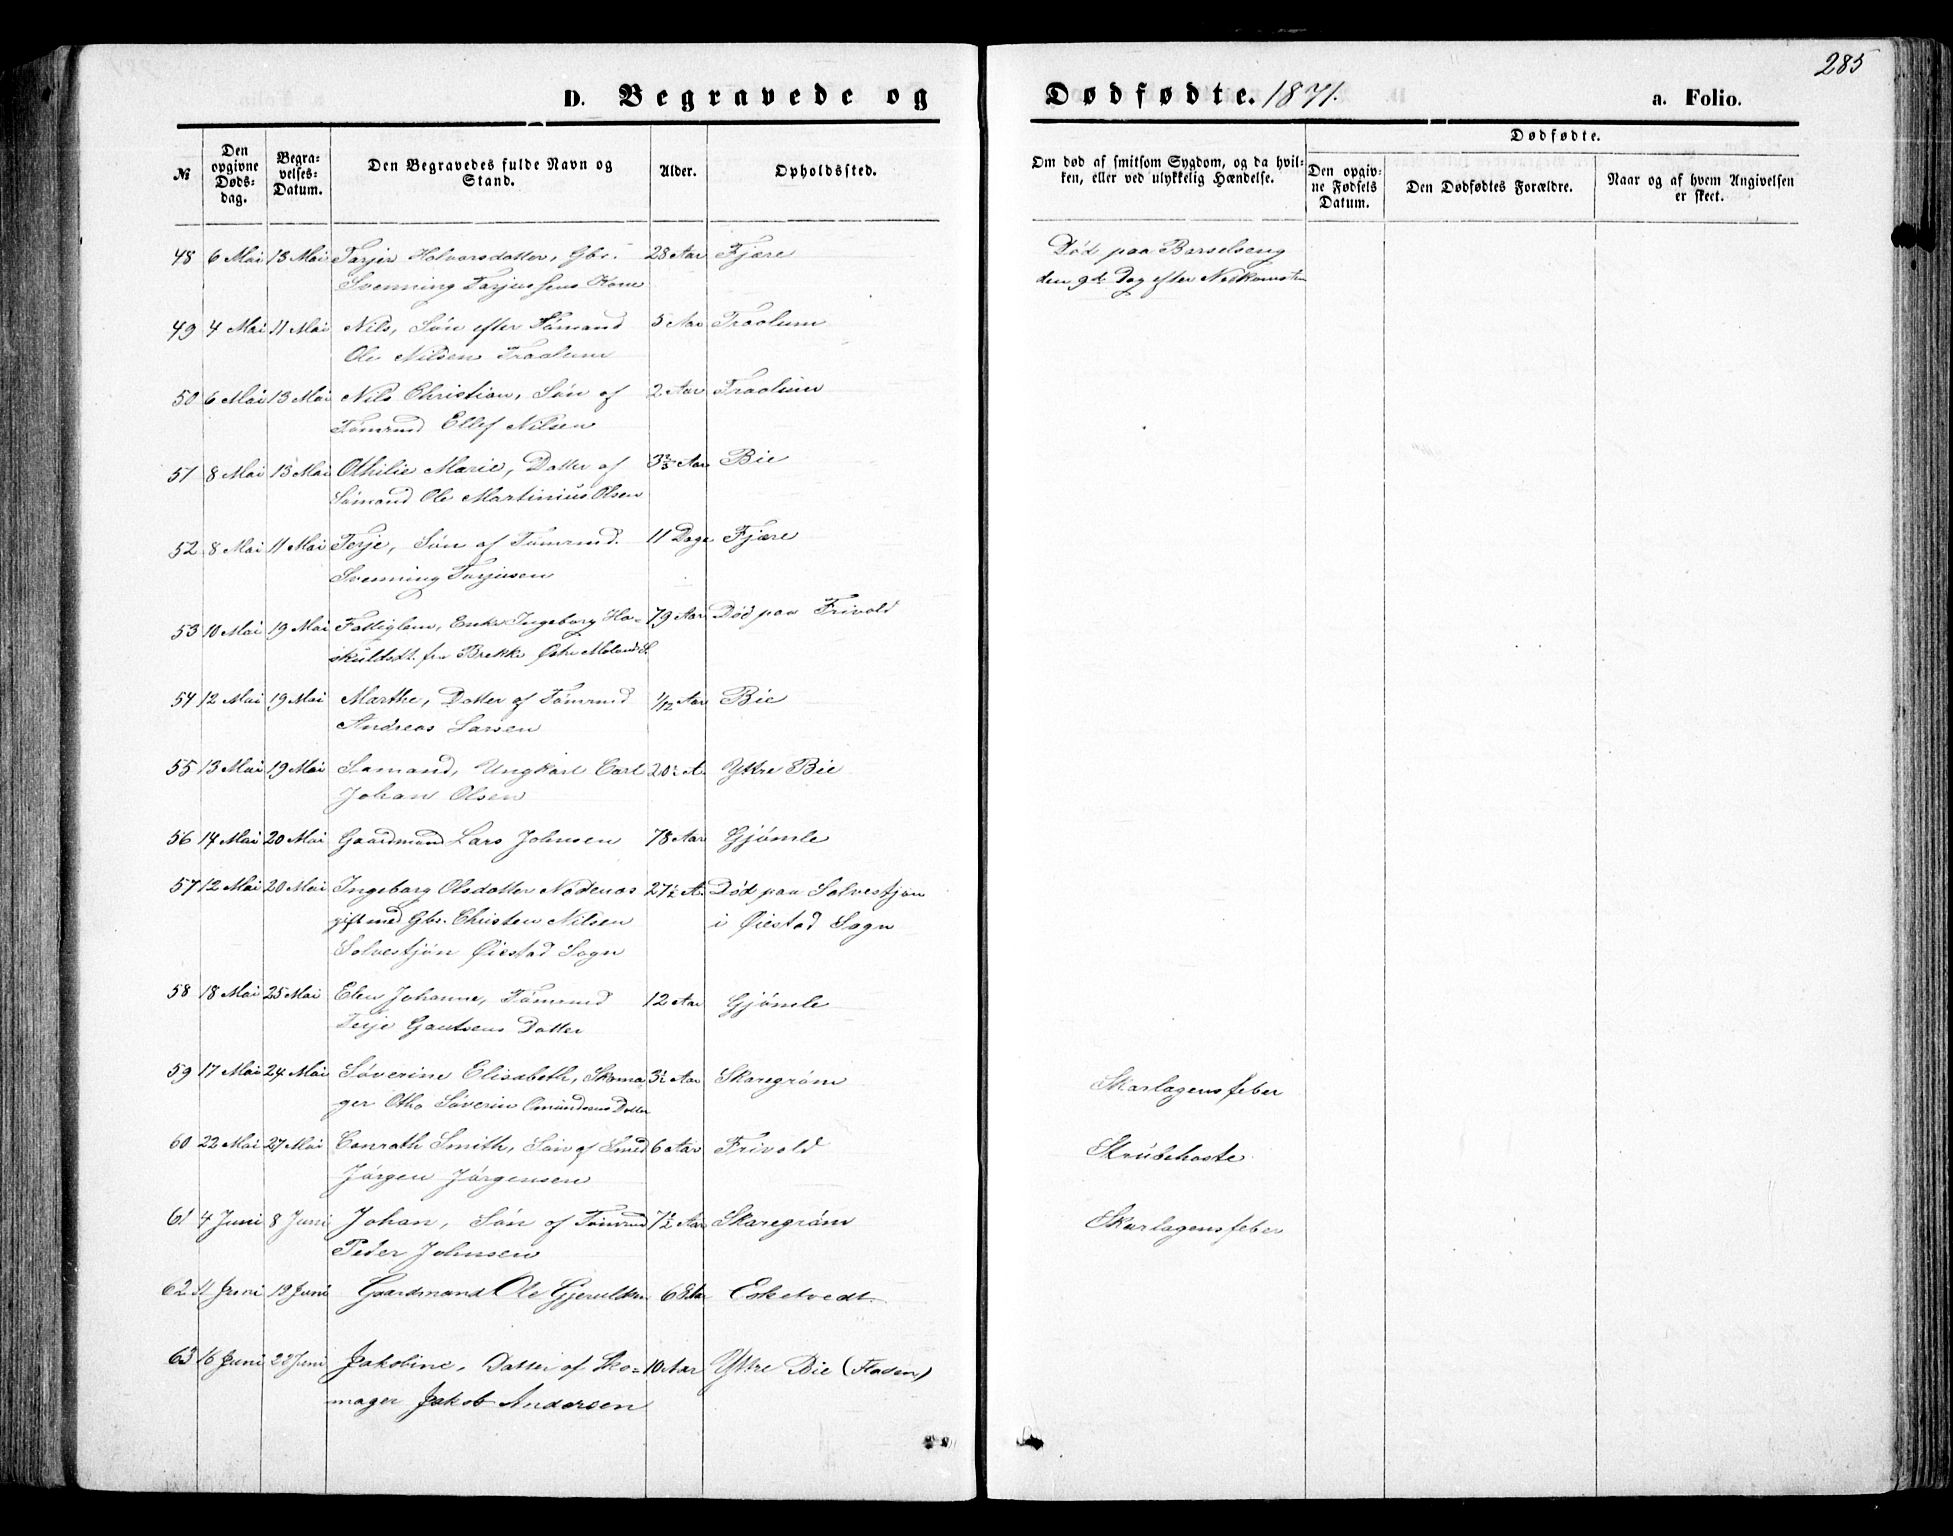 285
D. Begravede og Dødfødte. 1871. a. Folio.
№
Den opgivne Døds-dag.
Begra-velses-Datum.
Den Begravedes fulde Navn og Stand.
Alder.
Opholdssted.
Om død af smitsom Sygdom, og da hvil-ken, eller ved ulykkelig Hændelse.
Dødfødte.
Den opgiv-ne Fødsels Datum.
Den Dødfødtes Forældre.
Naar og af hvem Angivelsen er skeet.
48 6 Mai 13 Mai Tarjer Halvorsdatter, Gbr. 28 Aar Fjære Død paa Barselseng
Svenning Tarjussens Kone den 9de Dag efter Nedkomsten
49 4 Mai 11 Mai Nils, Søn efter Sømand 5 Aar Traolum
Ole Nilsen Traolum
50 6 Mai 13 Mai Nils Christian, Søn af 2 Aar Traolum
Tømmd Ellef Nilsen
51 8 Mai 15 Mai Othilie Marie, Datter af 3 2/3 Aar Bie
Sømand Ole Martinius Olsen
52 8 Mai 11 Mai Terje, Søn af Tømmd. 11 Dage Fjære
Svenning Tarjusen
53 10 Mai 19 Mai Fattiglem, Enke Ingeborg Ha- 79 Aar Død paa Frivold
skuldsdt. fra Brekke Østre Moland S.
54 12 Mai 19 Mai Marthe, Datter af Tømmd 1/12 Aar Bie
Andreas Larsen
55 13 Mai 19 Mai Sømand, Ungkarl Carl 20½ A. Yttre Bie
Johan Olsen
56 14 Mai 20 Mai Gaardmand Lars Johnsen 78 Aar Gjømle
57 12 Mai 20 Mai Ingeborg Olsdatter Nødenæs 27½ A. Død paa Salvestjøn
gift med Gbr. Christen Nilsen i Øiestad Sogn
Solvestjøn Øiestad Sogn
58 18 Mai 25 Mai Elen Johanne, Tømmd 12 Aar Gjømle
Terje Gautsens Datter
59 17 Mai 24 Mai Søverine Elisabeth, Skoma- 3½ Aar Skaregrøm Skarlagensfeber
ger Otho Søverin Omundsens Datter
60 22 Mai 27 Mai Conrath Smith, Søn af Smed 6 Aar Frivold Strubehoste
Jørgen Jørgensen
61 4 Juni 8 Juni Johan, Søn af Tømmd 7½ Aar Skaregrøm Skarlagensfeber
Peder Johnsen
62 11 Juni 19 Juni Gaardmand Ole Gjeruldsen 68 Aar Esketvedt.
63 16 Juni Juni Jakobine, Datter af Sko- 10 Aar Yttre Bie (Fladen)
mager Jakob Andersen